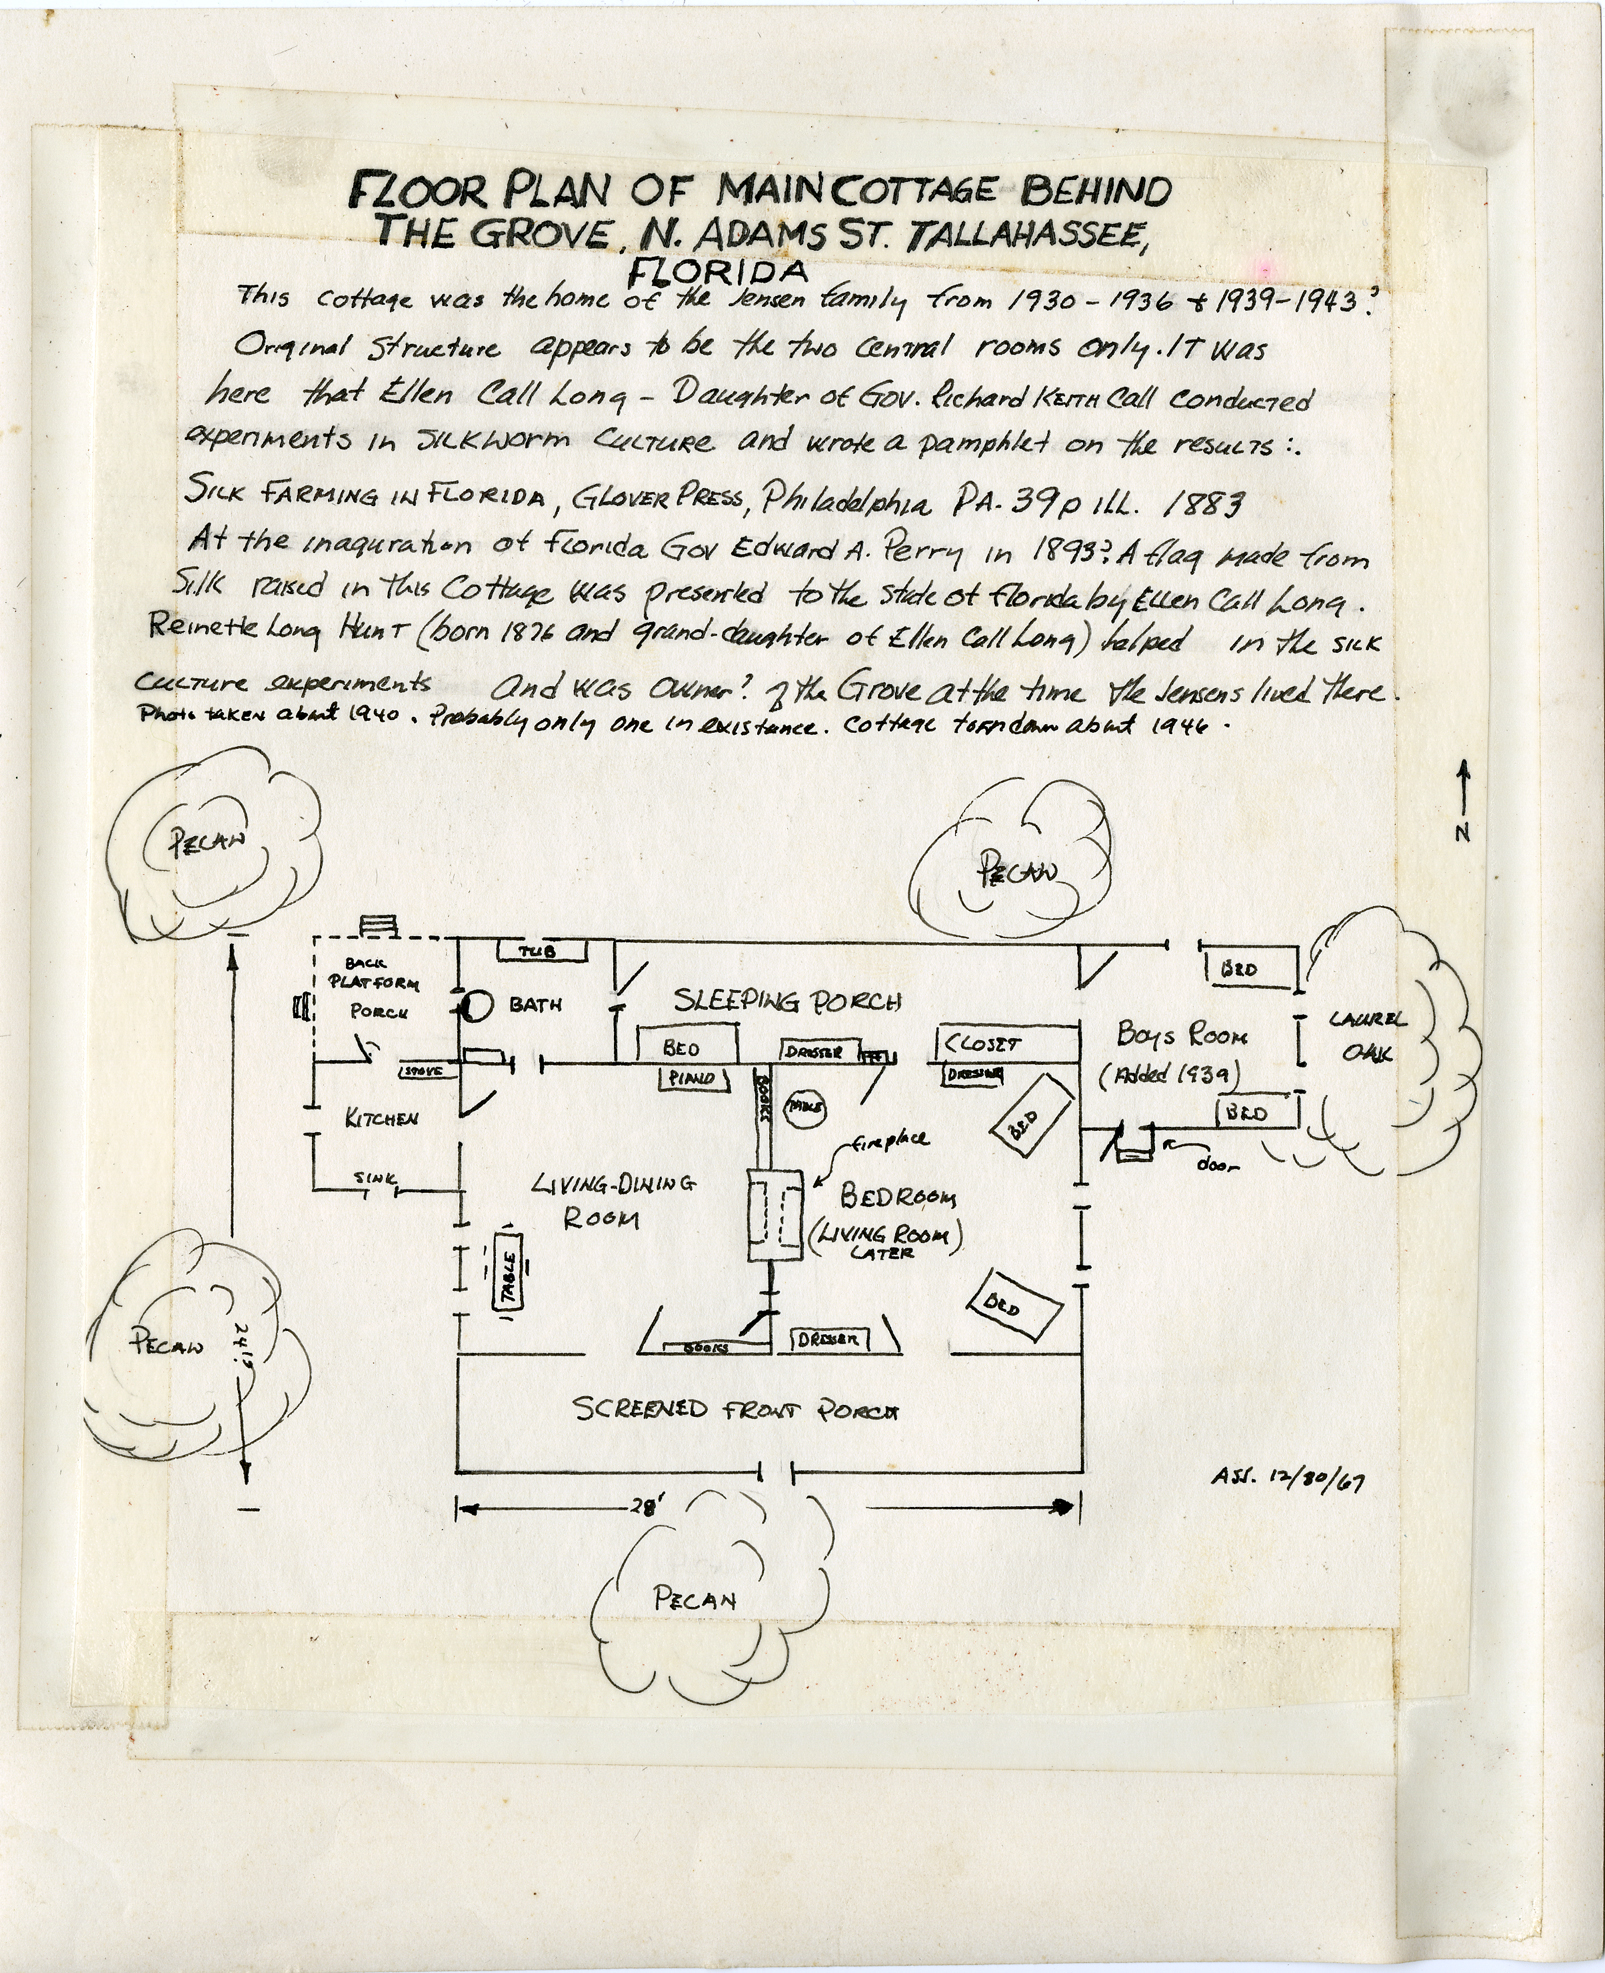 FLOOR PLAN OF MAIN COTTAGE BEHIND
THE GROVE, N. ADAMS ST. TALLAHASSEE,
FLORIDA
This cottage was the home of the Jensen family from 1930 - 1936 + 1939-1943?
Original structure appears to be the two central rooms only. It was
here that Ellen Call Long - Daughter of Gov. Richard Keith Call conducted
experiments in silkworm culture and wrote a pamphlet on the results :.
SILK FARMING IN FLORIDA, GLOVER PRESS, Philadelphia PA. 39p ill. 1883
At the inaguration of Florida Gov Edward A. Perry in 1893? A flag made from
Silk raised in this Cottage was presented to the state of Florida by Ellen Call Long.
Reinette Long Hunt (born 1876 and grand-daughter of Ellen Call Long) helped in the silk
culture experiments and was owner? of the Grove at the time the Jensens lived there.
Photo taken about 1940. Probably only one in existance. Cottage torn down about 1946.
N
PECAN
PECAN
BACK
PLATFORM
PORCH
TUB
BATH
SLEEPING PORCH
BED
LAUREL
OAK
BED
DRESSER
CLOSET
BOYS ROOM
(Added 1939)
STOVE
PIANO
BOOKS
TABLE
DRESSER
BED
BED
KITCHEN
fireplace
door
SINK
LIVING-DINING
ROOM
BEDROOM
(LIVING ROOM)
LATER
TABLE
BED
PECAN
24'?
BOOKS
DRESSER
SCREENED FRONT PORCH
28'
PECAN